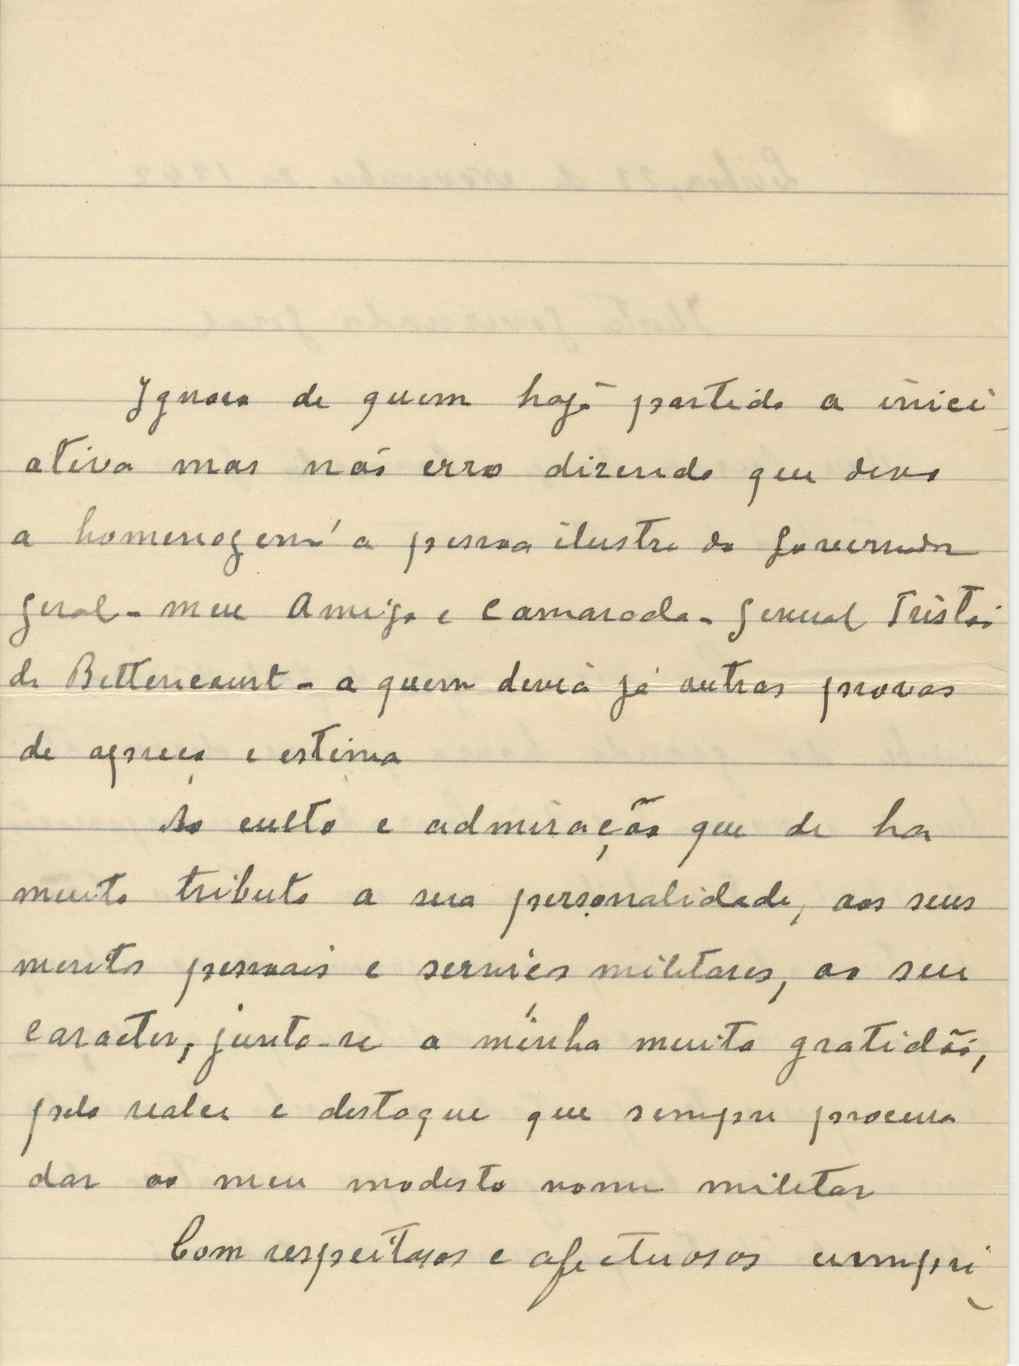 Ignoro de quem haja partido a inici
ativa mas não erro dizendo que devo
a homenagem á pessoa ilustre do Governador
Geral - meu Amigo e Camarada - General Tristão
de Bettencourt - a quem devia já outras provas
de apreço e estima
Ao culto e admiração que de ha
muito tributo a sua personalidade, aos seus
meritos pessoais e serviços militares, ao seu
caracter, junta-se a minha muita gratidão,
pelo realce e destaque que sempre procura
dar ao meu modesto nome militar
Com respeitosos e afectuosos cumpri